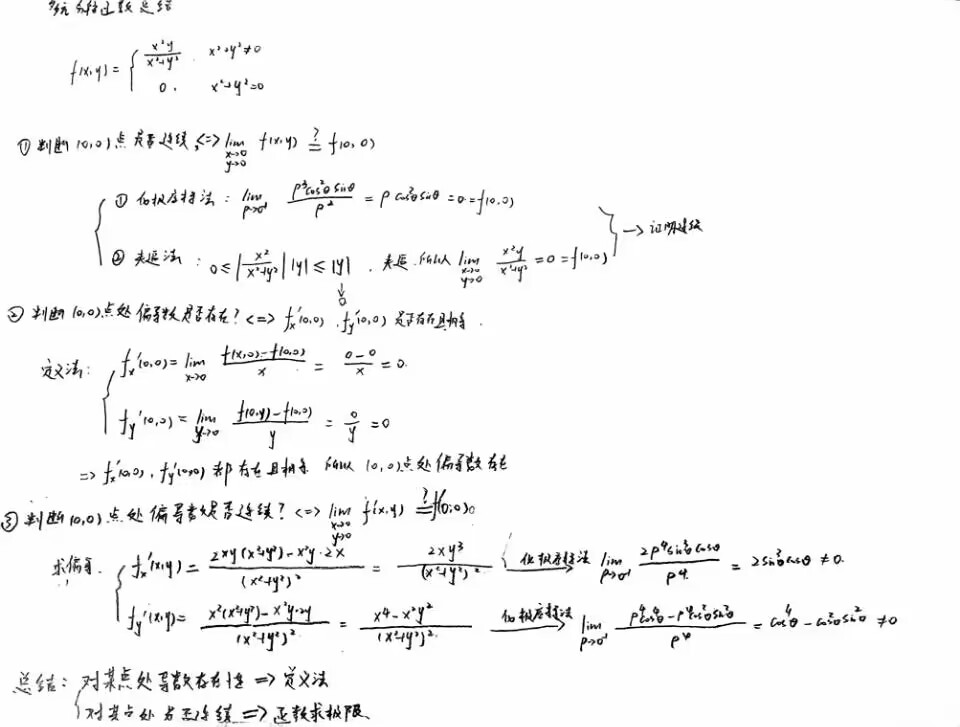 函数总结
f(x,y) = { x²y/(x²+y²), x²+y²≠0
0, x²+y²=0
① 判断(0,0)点是否连续 <=> lim x→0 y→0 f(x,y) ?= f(0,0)
① 化极座标法: lim ρ→0⁺ ρ³cos²θsinθ/ρ² = ρcos²θsinθ = 0 = f(0,0)
② 夹逼法: 0 ≤ |x²/(x²+y²)| |y| ≤ |y| . 夹逼.所以 lim x→0 y→0 x²y/(x²+y²) = 0 = f(0,0)
→ 证明连续
↓ 0
② 判断(0,0)点处偏导数是否存在? <=> fx'(0,0) , fy'(0,0) 是否存在且相等.
定义法: fx'(0,0) = lim x→0 (f(x,0)-f(0,0))/x = (0-0)/x = 0.
fy'(0,0) = lim y→0 (f(0,y)-f(0,0))/y = 0/y = 0
=> fx'(0,0) , fy'(0,0) 都存在且相等 所以 (0,0)点处偏导数存在
③ 判断(0,0)点处偏导数是否连续? <=> lim x→0 y→0 f'(x,y) ?= f(0,0)
求偏导. fx'(x,y) = (2xy(x²+y²)-x²y·2x)/(x²+y²)² = 2xy³/(x²+y²)² 化极座标法→ lim ρ→0⁺ 2ρ⁴sin³θcosθ/ρ⁴ = 2sin³θcosθ ≠ 0.
fy'(x,y) = (x²(x²+y²)-x²y·2y)/(x²+y²)² = (x⁴-x²y²)/(x²+y²)² 化极座标法→ lim ρ→0⁺ (ρ⁴cos⁴θ-ρ⁴cos²θsin²θ)/ρ⁴ = cos⁴θ-cos²θsin²θ ≠ 0
总结: 对某点处导数存在性 => 定义法
对某点处是否连续 => 函数求极限